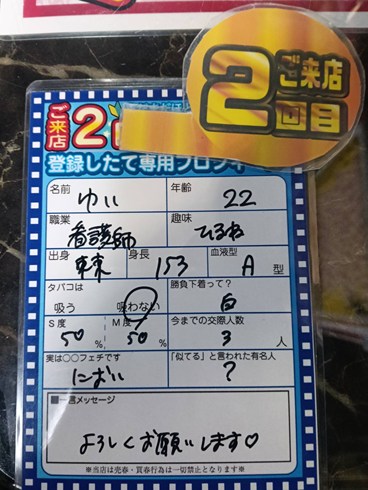 ご来店
2
回目
ご来店
2
登録したて専用プロフィ
名前
ゆい
年齢
22
職業
看護師
趣味
ひるね
出身
東京
身長
153
血液型
A 型
タバコは
吸う
吸わない
勝負下着って?
白
S度
50 %
M度
50 %
今までの交際人数
3 人
実は〇〇フェチです
におい
「似てる」と言われた有名人
?
■一言メッセージ
よろしくお願いします♡
※当店は売春・買春行為は一切禁止となります※